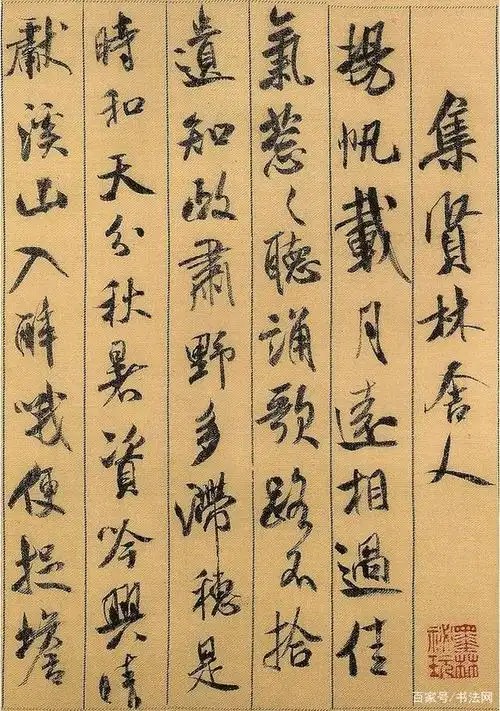 集賢林舍人
揚帆載月遠相過佳
氣葱々聽誦歌路不拾
遺知政肅野多滯穗是
時和天分秋暑資吟興晴
獻溪山入醉哦便捉蟾
墨林祕玩
百家号/书法网